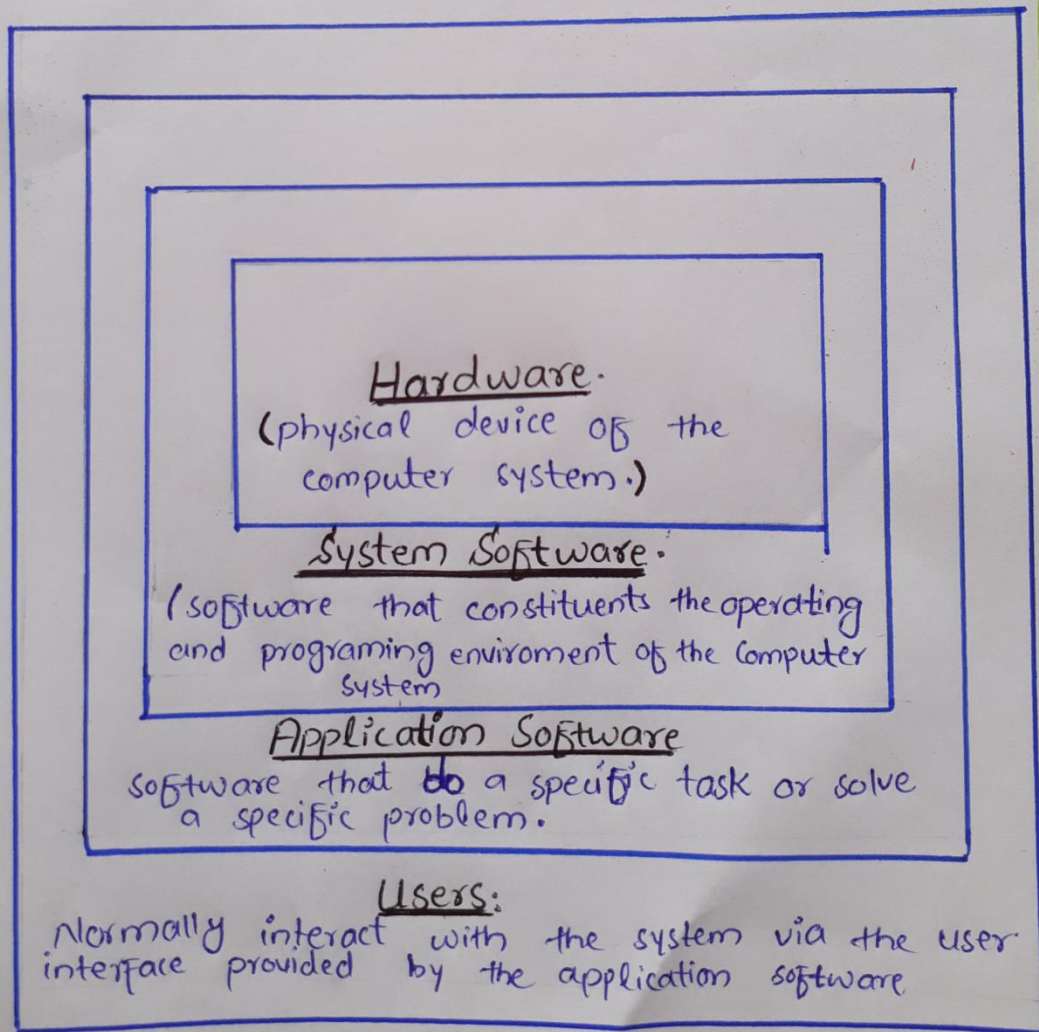 Hardware.
(physical device of the
computer system.)
System Software.
(software that constituents the operating
and programing enviroment of the computer
system
Application Software
software that do a specific task or solve
a specific problem.
Users:
Normally interact with the system via the user
interface provided by the application software